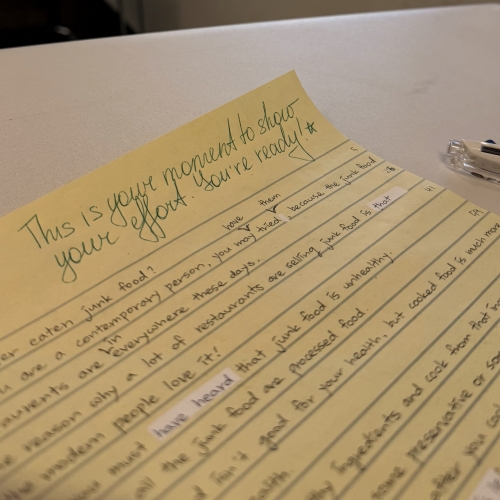 This is your moment to show
your effort. You're ready!*
eaten junk food?
have them
are a contemporary person, you may tried because the junk food
in
are everywhere these days.
reason why a lot of restaurants are selling junk food is that
modern people love it!
must have heard that junk food is unhealthy.
all the junk food are processed food.
isn't good for your health, but cooked food is much more
ingredients and cook from that
preservative or
after you